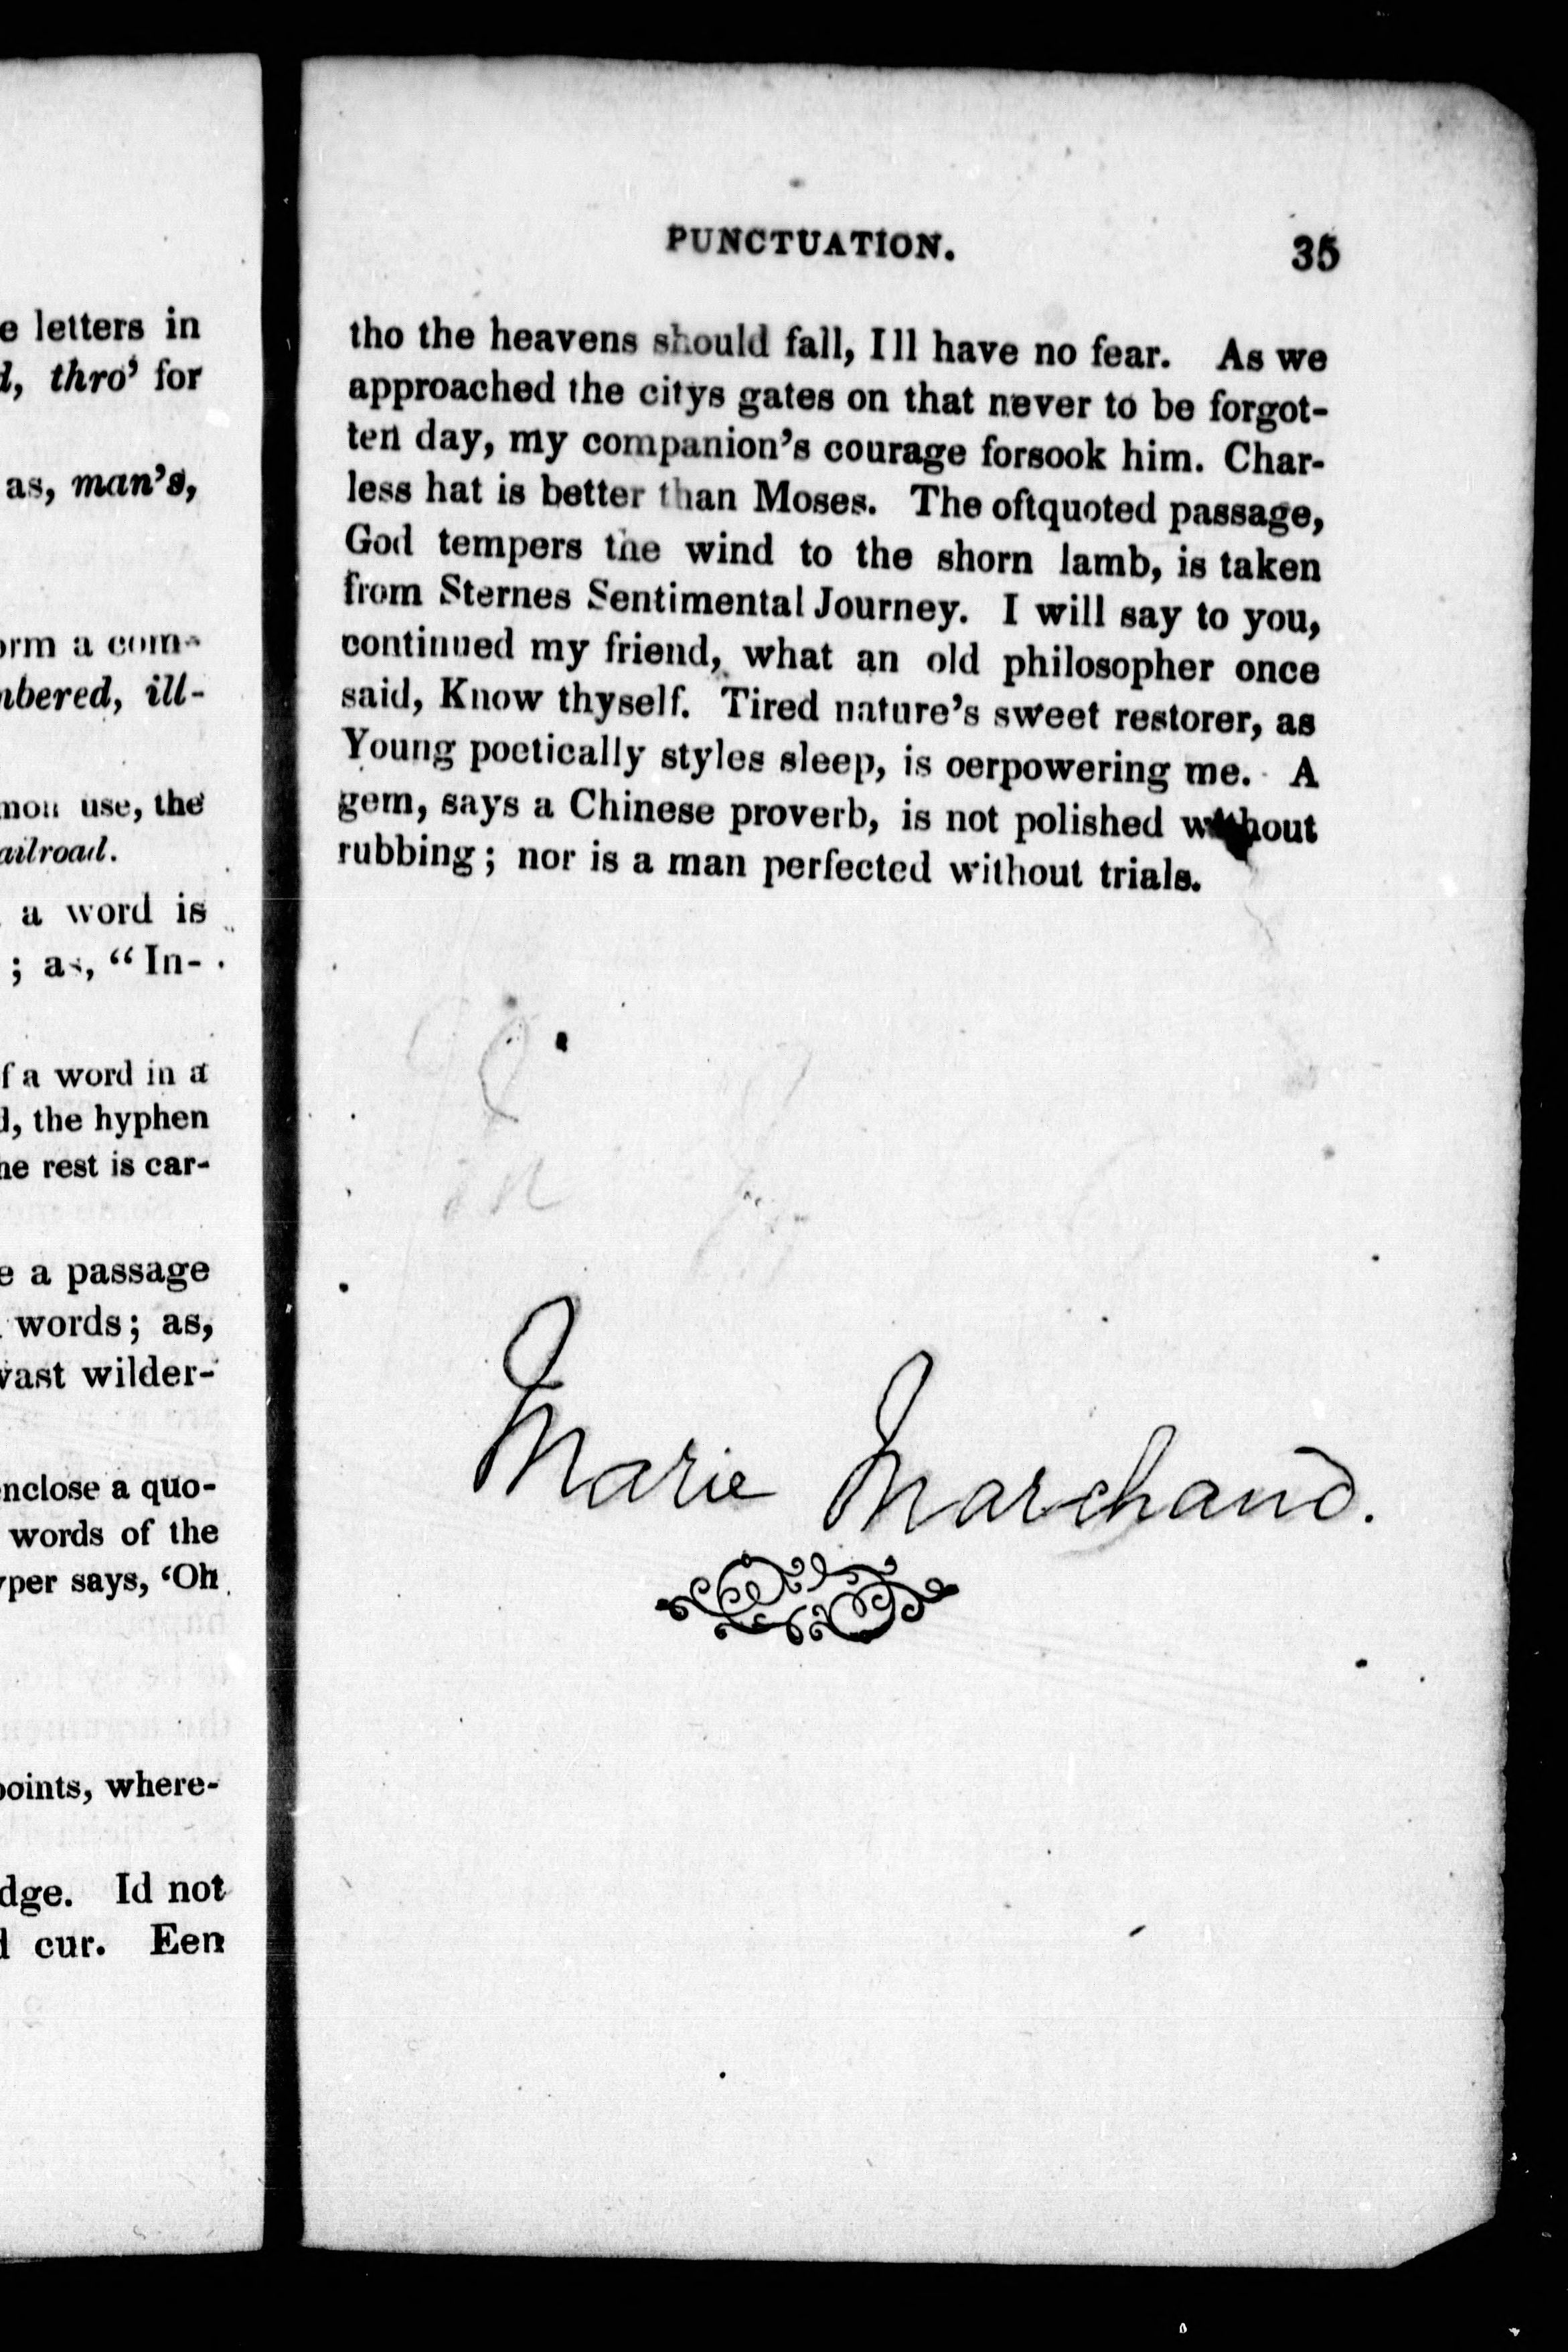 e letters in
d, thro' for
as, man's,
orm a com-
nbered, ill-
mon use, the
ailroad.
a word is
; as, "In-
f a word in a
d, the hyphen
he rest is car-
e a passage
words; as,
vast wilder-
nclose a quo-
words of the
yper says, 'Oh
points, where-
dge. Id not
d cur. Een
PUNCTUATION. 35
tho the heavens should fall, I ll have no fear. As we
approached the citys gates on that never to be forgot-
ten day, my companion's courage forsook him. Char-
less hat is better than Moses. The oftquoted passage,
God tempers the wind to the shorn lamb, is taken
from Sternes Sentimental Journey. I will say to you,
continued my friend, what an old philosopher once
said, Know thyself. Tired nature's sweet restorer, as
Young poetically styles sleep, is oerpowering me. A
gem, says a Chinese proverb, is not polished without
rubbing; nor is a man perfected without trials.
Marie Marchand.